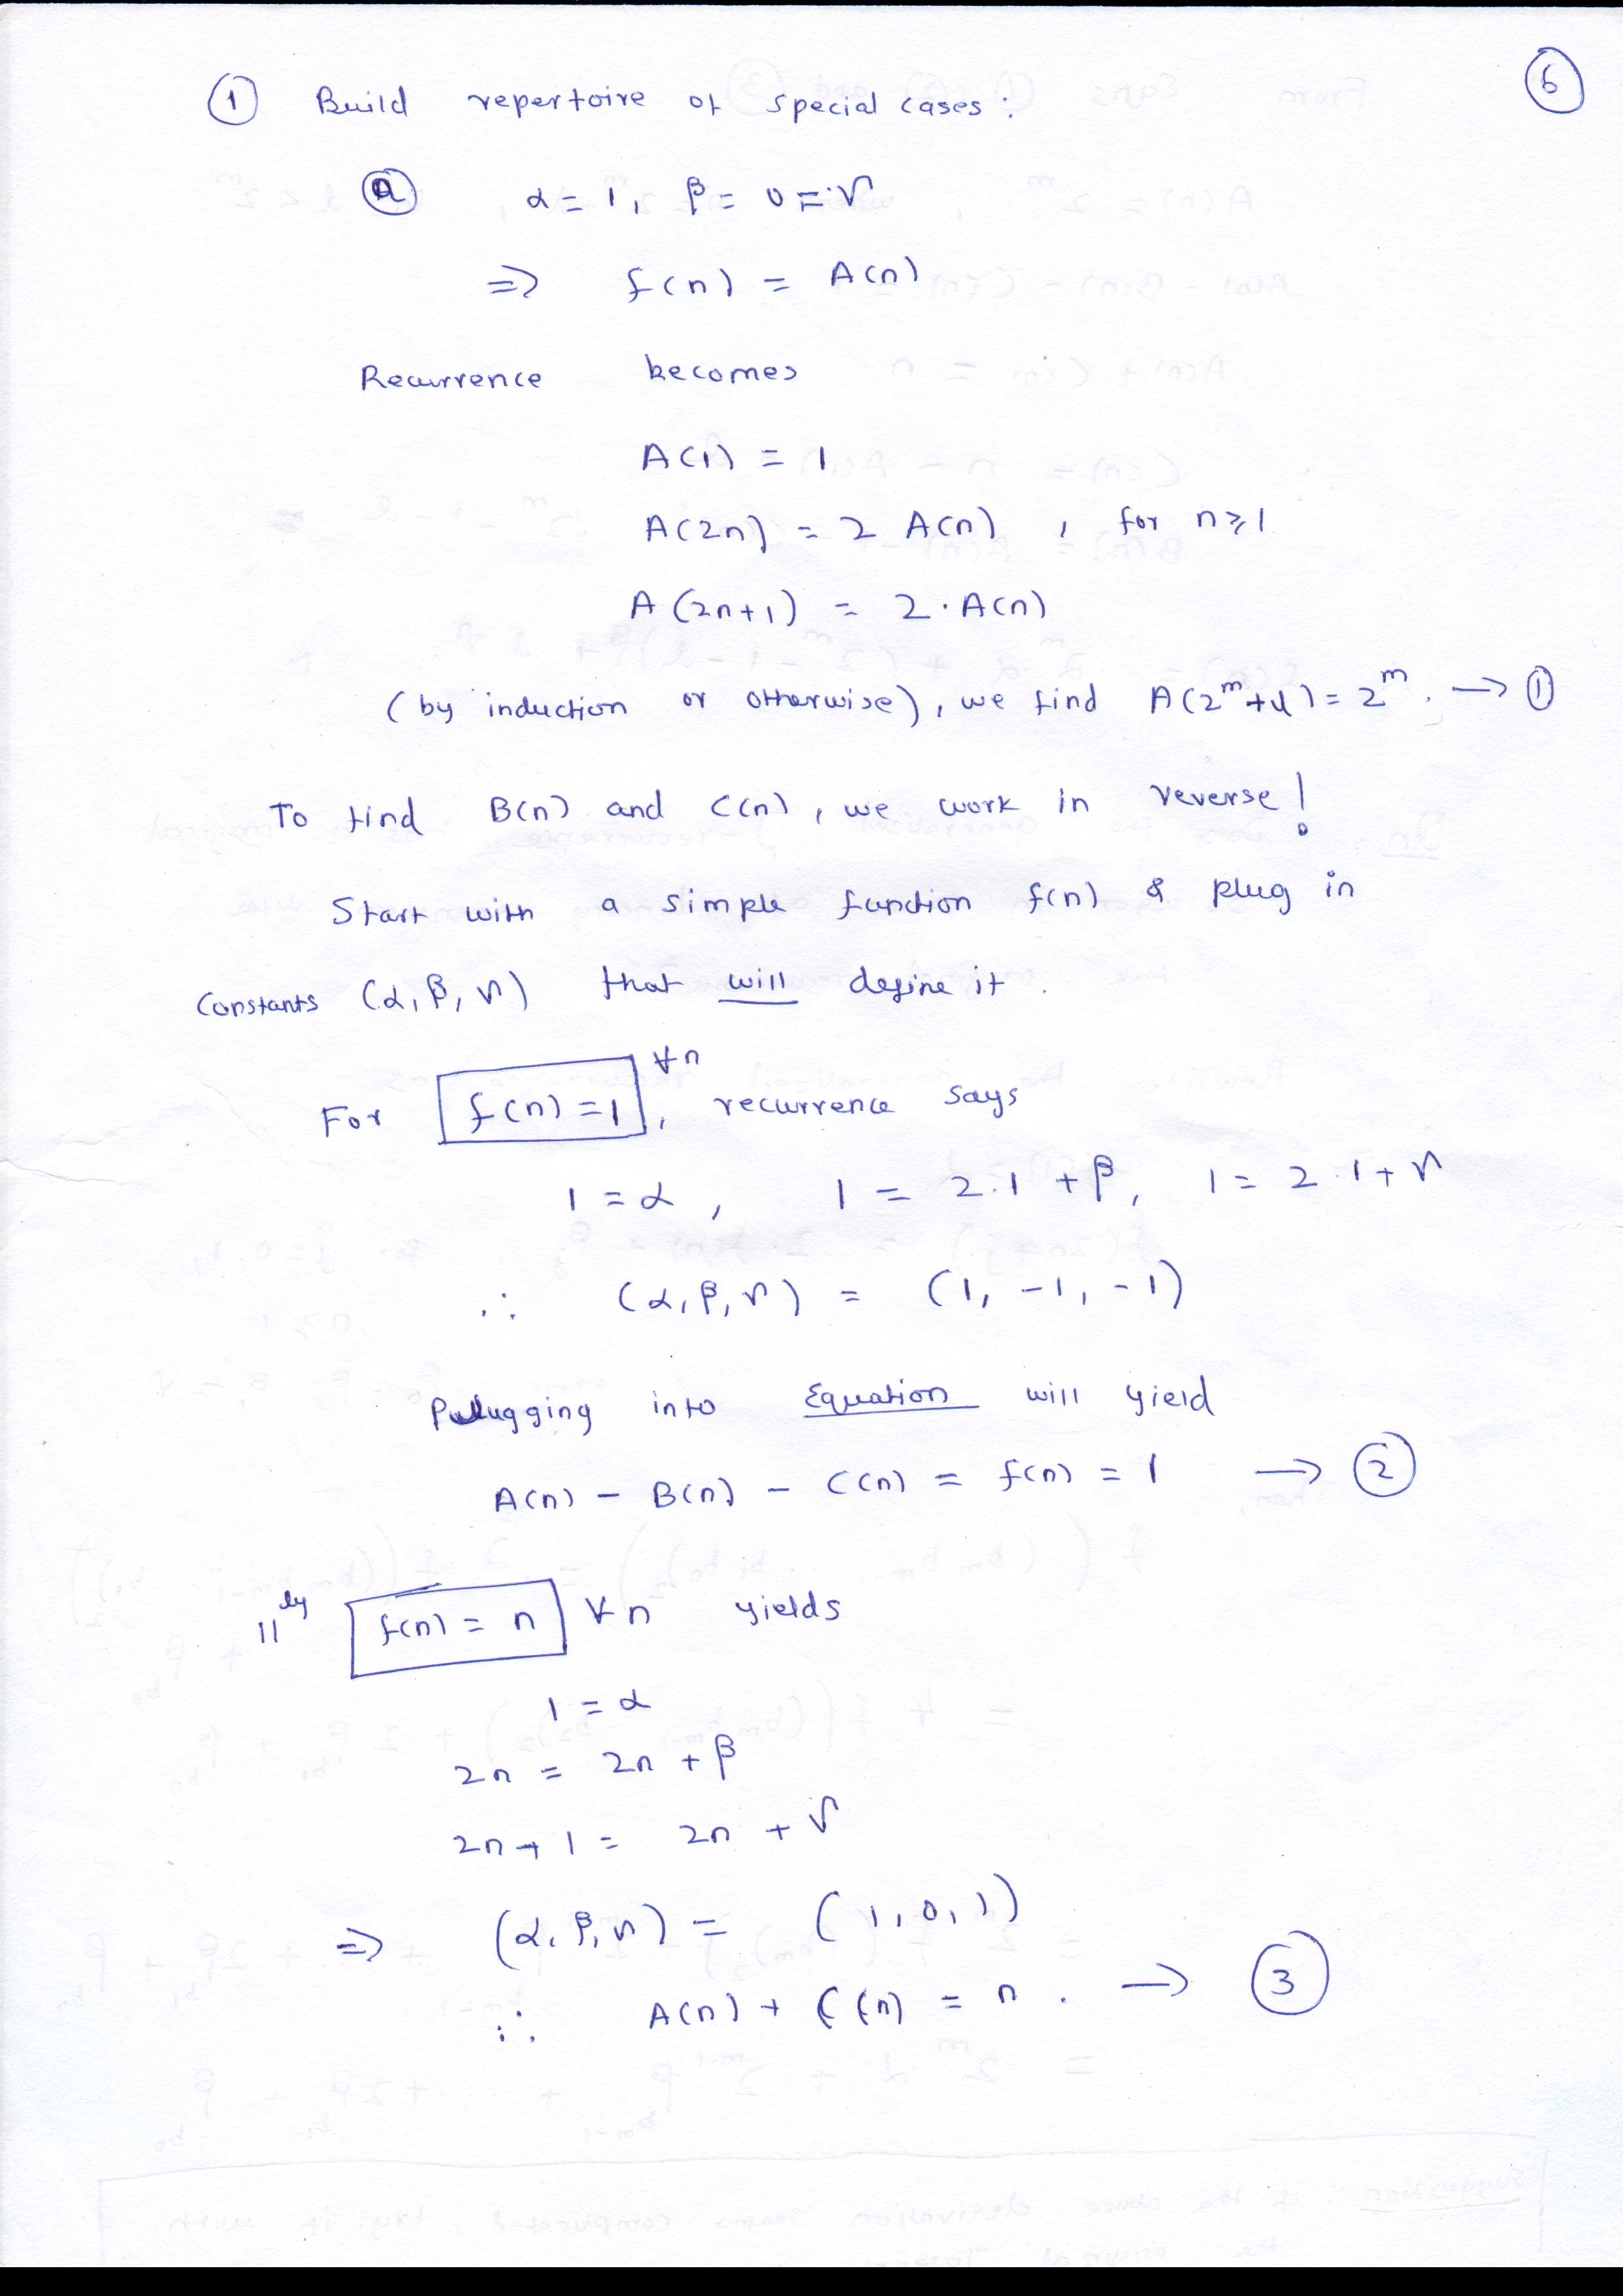 6
① Build repertoire of special cases :
ⓐ α = 1, β = 0 = γ
⇒ f(n) = A(n)
Recurrence becomes
A(1) = 1
A(2n) = 2 A(n) , for n ≥ 1
A(2n+1) = 2 · A(n)
(by induction or otherwise), we find A(2^m + l) = 2^m. → ①
To find B(n) and C(n), we work in reverse!
Start with a simple function f(n) & plug in
constants (α, β, γ) that will define it.
For f(n) = 1 ∀n, recurrence says
1 = α , 1 = 2.1 + β, 1 = 2.1 + γ
∴ (α, β, γ) = (1, -1, -1)
Plugging into Equation will yield
A(n) - B(n) - C(n) = f(n) = 1 → ②
||ly f(n) = n ∀n yields
1 = α
2n = 2n + β
2n + 1 = 2n + γ
⇒ (α, β, γ) = (1, 0, 1)
∴ A(n) + C(n) = n . → ③